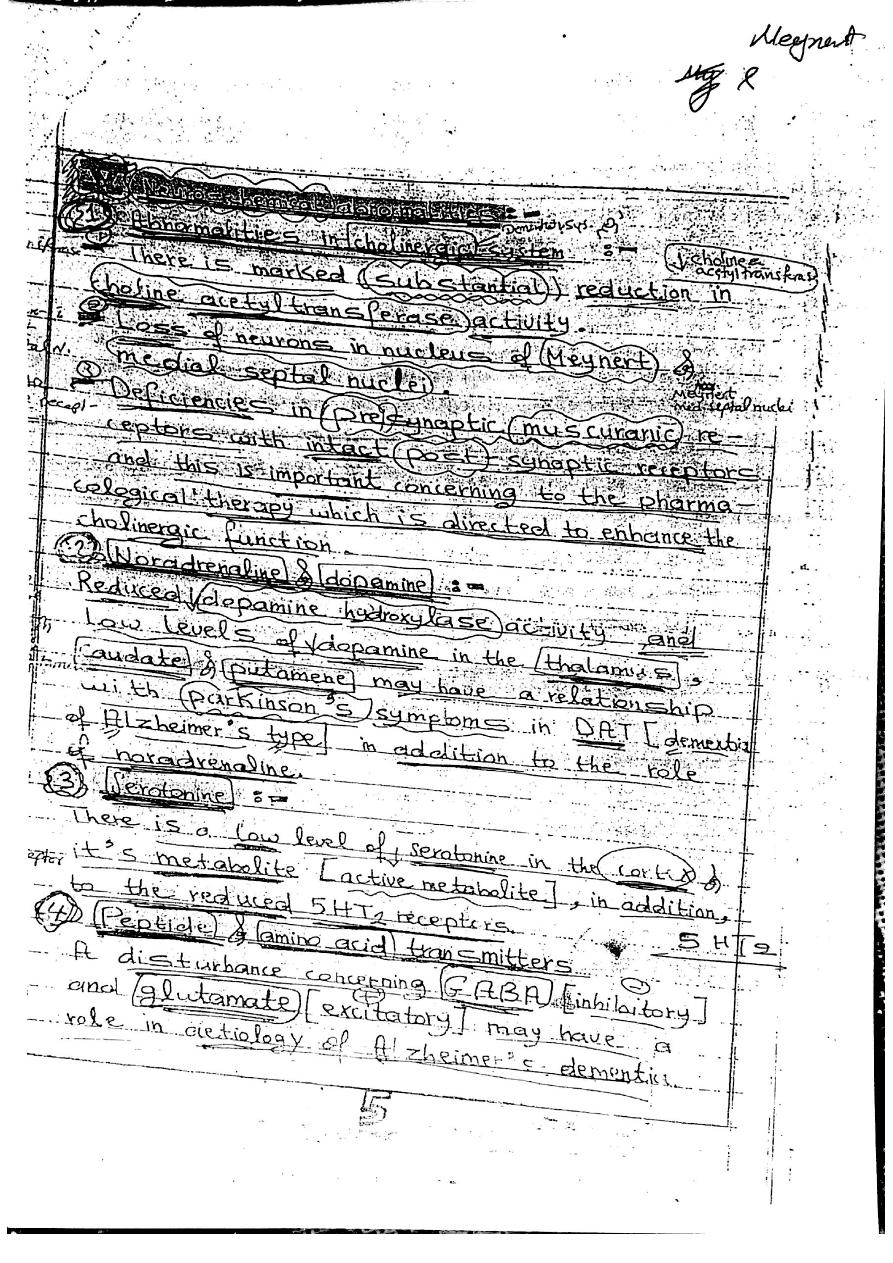 Meynert
&
Neurochemical abnormalities :-
(1) Abnormalities in [cholinergic] system :-
↓ choline
acetyl transferase
(1) There is marked ((substantial)) reduction in
(choline acetyl transferase) activity.
(2) Loss of neurons in nucleus of (Meynert) &
(medial septal nuclei).
Meynert
med. septal nuclei
(3) Deficiencies in (pre) synaptic (muscuranic) re-
ceptors with intact (post)-synaptic receptors
and this is important concerning to the pharma-
cological therapy which is directed to enhance the
cholinergic function.
(2) [Noradrenaline] & [dopamine] :-
Reduced ↓ (dopamine hydroxylase) activity and
Low levels of ↓ dopamine in the [thalamus],
[caudate] & [putamene] may have a relationship
with (parkinson's) symptoms in DAT [dementia
of Alzheimer's type] in addition to the role
of noradrenaline.
(3) [Serotonine] :-
There is a low level of ↓ serotonine in the (cortex) &
it's metabolite [active metabolite], in addition,
to the reduced 5HT2 receptors.
5 HT2
(4) [Peptide] & [amino acid] transmitters
A disturbance concerning [GABA] [inhibitory] (-)
and (glutamate) [excitatory] (+) may have a
role in aetiology of Alzheimer's dementia.
5